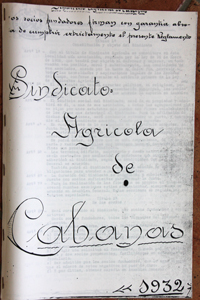 Los socios fundadores firman con garantía abso-
a de cumplir estrictamente el presente Reglamento
Sindicato
Agricola
de
Cabanas
1932